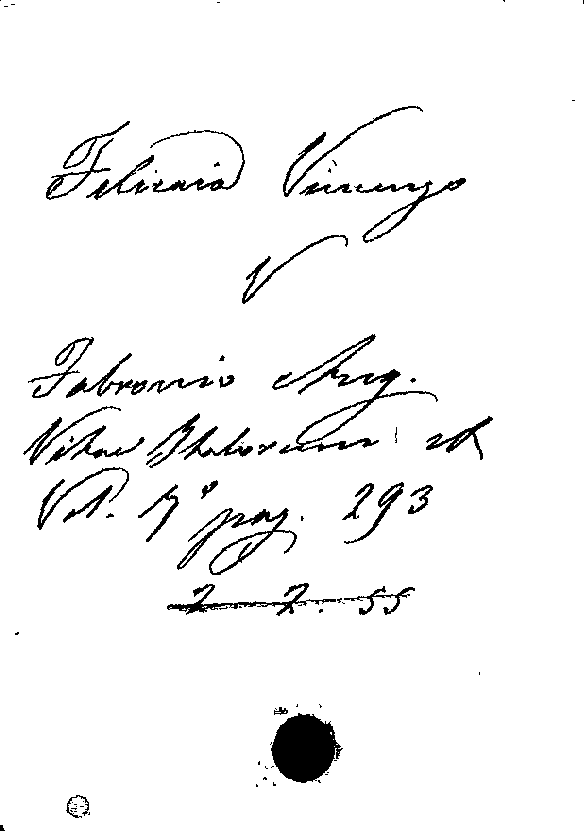 Filicaia Vincenzo
V
Fabronio Ang.
Vitae Italorum etc
Vol. 7° pag. 293
2 7. 55